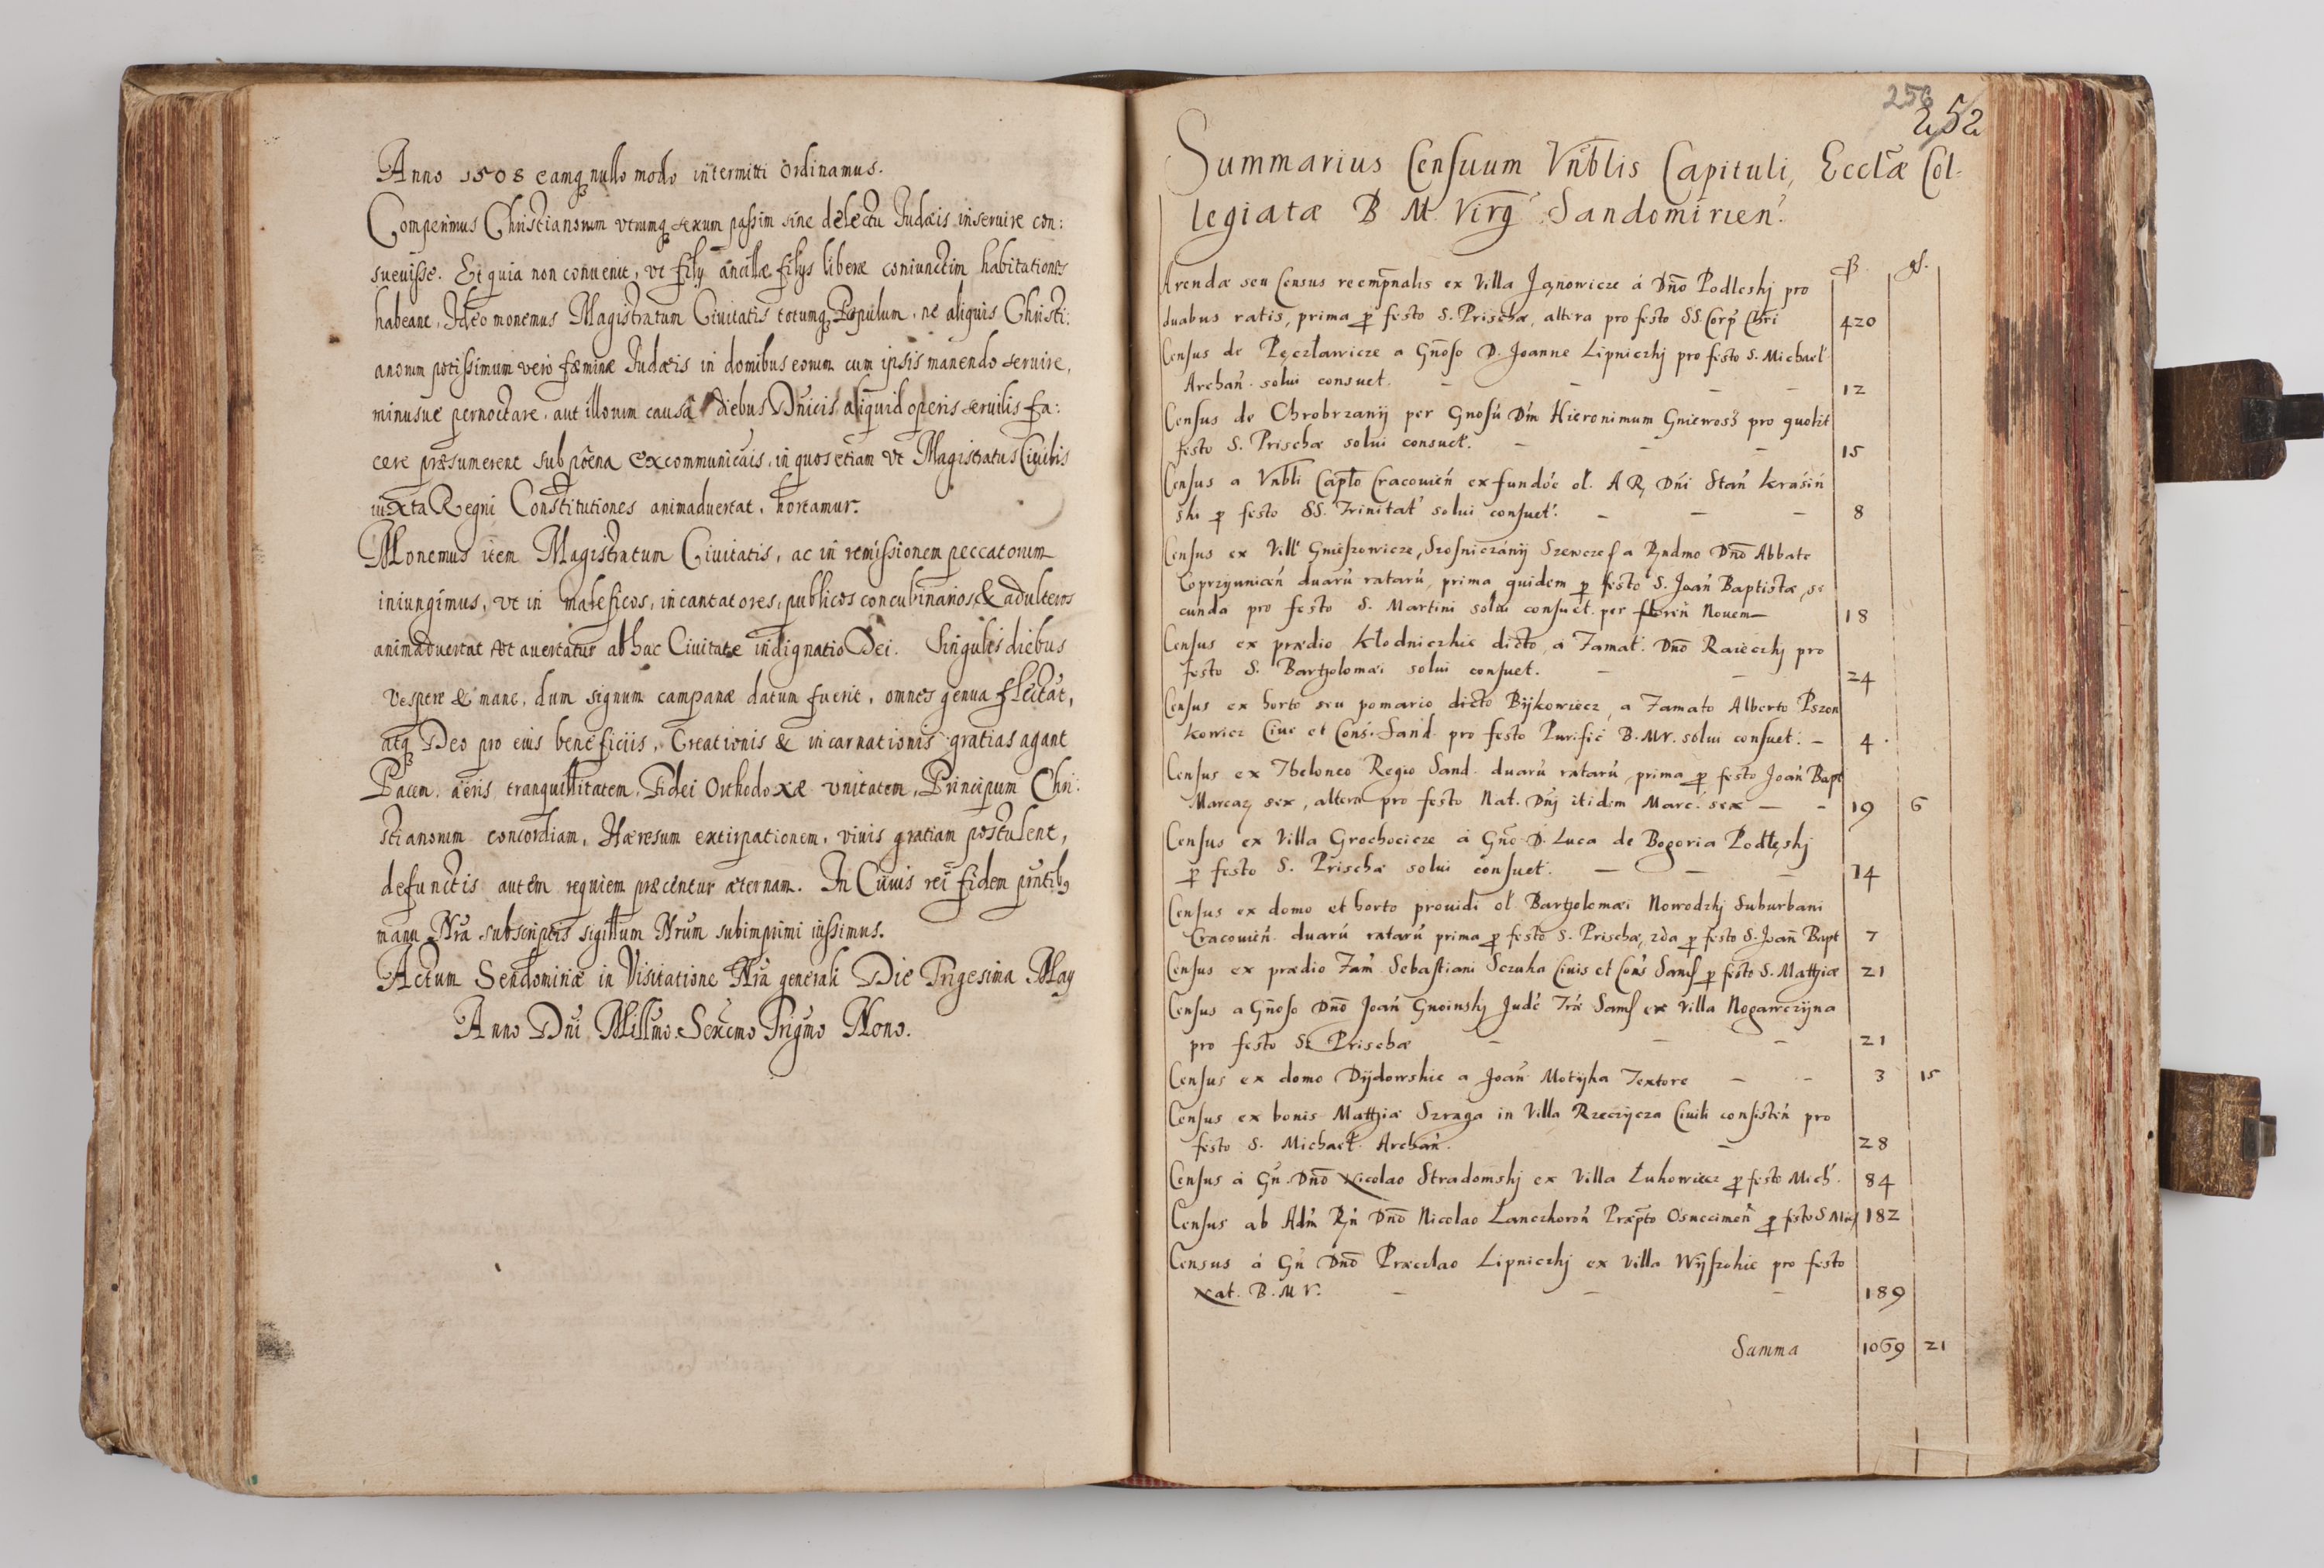 Anno 1508 eamq nullo modo intermitti ordinamus.
Comperimus Christianorum utrumq sexum passim sine delectu Iudæis inseruire con:
sueuisse. Et quia non conuenit, vt filij ancillæ filijs liberæ coniunctim habitationes
habeant, Ideo monemus Magistratum Ciuitatis totumq Populum, ne aliquis Christi:
anorum potissimum vero fæminæ Iudæis in domibus eorum cum ipsis manendo seruire,
minusue pernoctare, aut illorum causa diebus Dnicis aliquid operis seruilis fa:
cere præsumerent sub pœna excommunicãis, in quos etiam vt Magistratus Ciuilis
iuxta Regni Constitutiones animaduertat, hortamur.
Monemus item Magistratum Ciuitatis, ac in remissionem peccatorum
iniungimus, vt in maleficos, incantatores, publicos concubinarios, & adulteros
animaduertat vt auertatur ab hac Ciuitate indignatio Dei. Singulis diebus
vespere & mane, dum signum campanæ datum fuerit, omnes genua flectãt,
atq Deo pro eius beneficiis, Creationis & incarnationis gratias agant
Pacem, aëris tranquillitatem, Fidei Orthodoxæ vnitatem, Principum Chri:
stianorum concordiam, Hæresum extirpationem, viuis gratiam postulent,
defunctis autem requiem præcentur æternam. In Cuius rei fidem pñtibq
manu Nrã subscriptis sigillum Nrum subimprimi iussimus.
Actum Sendomiriæ in Visitatione Nrã generali Die Trigesima May
Anno Dñi Millmo Sexcmo Trigmo Nono.
256
252
Summarius Censuum Vnblis Capituli, Ecclæ Col-
legiatæ B M. Virg Sandomirien.
ß. gſ.
Arendæ seu Census reempnalis ex Villa Janowicze á Dño Podleskj pro
duabus ratis, prima p festo S. Priscæ, altera pro festo SS. Corp Chri 420
Census de Pęczławicze a Gñoso D. Joanne Lipniczkj pro festo S. Michael
Archañ. solui consuet. 12
Census de Chrobrzanÿ per Gnosũ Dñm Hieronimum Gniewosz pro quolit
festo S. Prischæ solui consuet. 15
Census a Vnbli Capło Cracouień ex fundõe ol. A R Dñi Stañ Krásiń
ski p festo SS. Trinitat solui consuet. 8
Census ex Vill Gnieszowicze, Szosniczánÿ Szewcze a Rndmo Dño Abbate
Coprzijuniceń duarũ ratarũ, prima quidem p festo S. Joañ Baptistæ, se
cunda pro festo S. Martini solui consuet. per floreñ Nouem 18
Census ex prædio Kłodniczkie dicto, a Famat. Dño Raieczkj pro
festo S. Bartholomæi solui consuet. 24
Census ex horto seu pomario dicto Bÿkowiecz, a Famato Alberto Pszon
kowicz Ciue et Cons. Sand. pro festo Purific B. M V. solui consuet. 4
Census ex Theloneo Regio Sand. duarũ ratarũ, prima p festo Joañ Bapt
Marcas sex, altera pro festo Nat. Dñj itidem Marc. sex 19 6
Census ex Villa Grochocicze á Gño D. Luca de Bogoria Podlęskj
p festo S. Prischæ solui consuet. 14
Census ex domo et horto prouidi ol. Bartholomæi Nowodzkj Suburbani
Cracouień. duarũ ratarũ prima p festo S. Prischæ, 2da p festo S. Joañ Bapt 7
Census ex prædio Fam. Sebastiani Sczuka Ciuis et Cons Sand p festo S. Matthiæ 21
Census a Gñoso Dño Joañ Gnoinskj Judč Træ Sand ex Villa Nogawczÿna
pro festo S. Prischæ 21
Census ex domo Dÿdowskie a Joañ Motÿka Textore 3 15
Census ex bonis Matthiæ Szraga in Villa Rzeczÿcza Ciuili consisteñ pro
festo S. Michael. Archañ. 28
Census á Gñ. Dño Nicolao Stradomskj ex Villa Łukowiecz p festo Mich. 84
Census ab Adm Rñ Dño Nicolao Lanczkoroń Præpto Osuecimeñ p festo S Mich 182
Census á Gñ Dño Præczlao Lipniczkj ex Villa Wÿszokie pro festo
Nat. B. M V. 189
Summa 1069 21